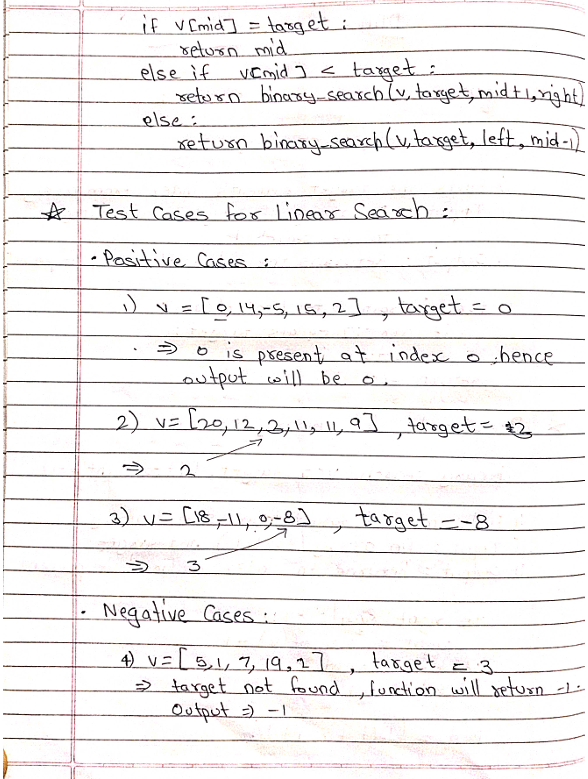 if v[mid] = target :
return mid
else if v[mid] < target :
return binary-search(v, target, mid+1, right)
else :
return binary-search(v, target, left, mid-1)
☆ Test Cases for Linear Search :
• Positive Cases :
1) v = [0, 14, -5, 15, 2] , target = 0
⇒ 0 is present at index 0 hence
output will be 0.
2) v= [20, 12, 2, 11, 11, 9] , target = 2
⇒ 2
3) v= [18, -11, 0, -8] , target = -8
⇒ 3
• Negative Cases :
4) v= [5, 1, 7, 19, 2] , target = 3
⇒ target not found , function will return -1.
Output ⇒ -1